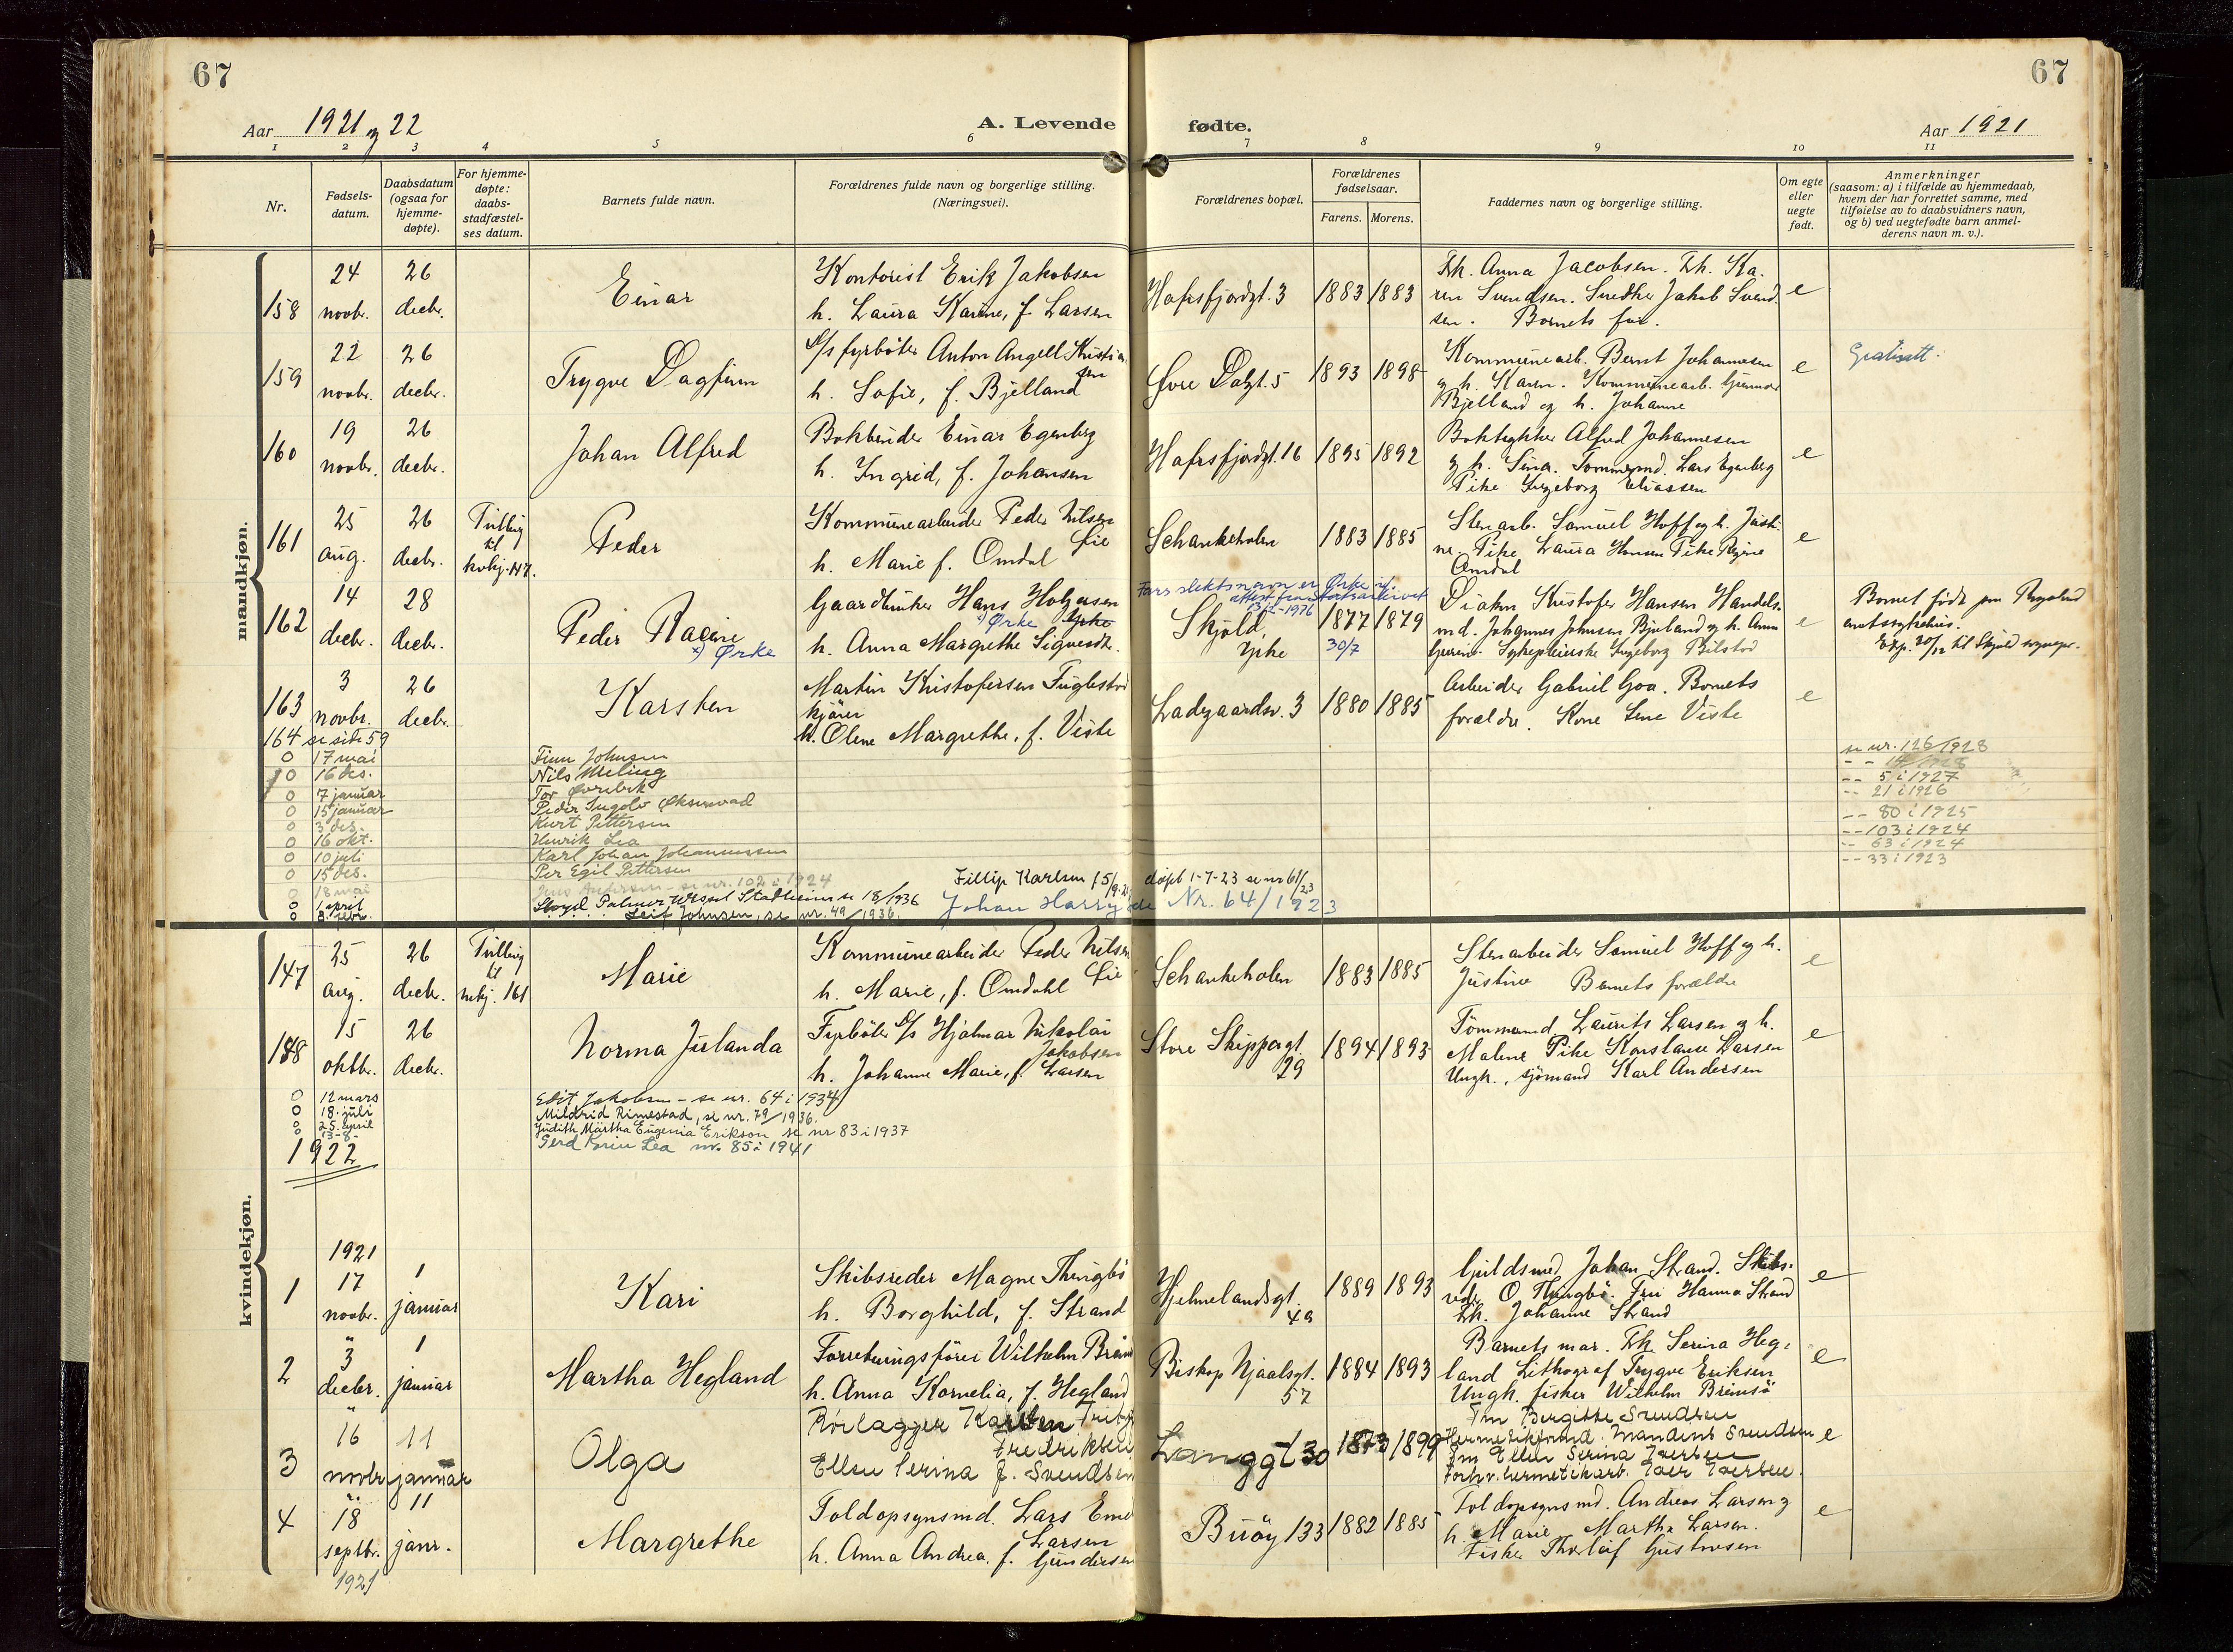 67
67
Aar 1921 og 22
A. Levende fødte.
Aar 1921
1 2 3 4 5 6 7 8 9 10 11
Nr.
Fødsels-
datum.
Daabsdatum
(ogsaa for
hjemme-
døpte).
For hjemme-
døpte:
daabs-
stadfæstel-
ses datum.
Barnets fulde navn.
Forældrenes fulde navn og borgerlige stilling.
(Næringsvei).
Forældrenes bopæl.
Forældrenes
fødselsaar.
Farens. Morens.
Faddernes navn og borgerlige stilling.
Om egte
eller
uegte
født.
Anmerkninger
(saasom: a) i tilfælde av hjemmedaab,
hvem der har forrettet samme, med
tilføielse av to daabsvidners navn,
og b) ved uegtefødte barn anmel-
derens navn m. v.).
mandkjøn.
158
24
novbr.
26
decbr.
Einar
Kontorist Erik Jakobsen
h. Laura Karine, f. Larsen
Hafrsfjordgt. 3
1883 1883
Frk. Anna Jacobsen. Frk. Ka-
ren Svendsen. Snedker Jakob Svend-
sen. Barnets far.
e
159
22
novbr.
26
decbr.
Trygve Dagfinn
D/s fyrbøter Anton Angell Kristian
sen
h. Sofie, f. Bjelland
Øvre Dalgt. 5
1893 1898
Kommunearb. Bernt Johannesen
og h. Karen. Kommunearb. Gunnar
Bjelland og h. Johanne
e
160
19
novbr.
26
decbr.
Johan Alfred
Bokbinder Einar Egenberg
h. Ingrid, f. Johansen
Hafrsfjordgt. 16
1895 1892
Boktrykker Alfred Johannesen
og h. Sina. Tømmermd. Lars Egenberg
Pike Ingeborg Eliassen
e
161
25
aug.
26
decbr.
Tvilling
til
kvkj. 147.
Peder
Kommunearbeider Peder Nilsen
Lie
h. Marie f. Omdal
Schankeholen
1883 1885
Stenarb. Samuel Hoff og h. Justi-
ne. Pike Laura Hansen Pike Regine
Omdal
e
162
14
decbr.
28
decbr.
Peder Racine
x) Ørke
Gaardbruker Hans Holgersen
x) Ørke Yrke
h. Anna Margrethe Sigvesdtr.
Fars slektsnavn er Ørke if.
attest fra statsarkivet
13/2-1976
Skjold,
Yrke
1877 1879
30/7
Diakon Kristofer Hansen Handels-
md. Johannes Johnsen Bjuland og h. Anna
Sykepleierske Ingeborg Bilstad
e
Barnet født paa Rogaland
amtssykehus.
Exp. 30/12 til Skjold sognepr.
163
3
novbr.
26
decbr.
Karsten
Martin Kristofersen Fuglestad
kjører
h. Olene Margrethe, f. Viste
Ladegaardsv. 3
1880 1885
Arbeider Gabriel Goa. Barnets
forældre. Kone Lene Viste
e
164 se side 59
0 17 mai Finn Johnsen se nr. 126/1928
0 16 des. Nils Meling -- 14/1928
0 7 januar Tor Øvrebek -- 5 i 1927
0 15 januar Peder Ingolv Øksnevad -- 21 i 1926
0 3 des. Kurt Pettersen -- 80 i 1925
0 16 okt. Henrik Lea -- 103 i 1924
0 10 juli Karl Johan Johannessen -- 63 i 1924
0 15 des. Per Egil Pettersen -- 33 i 1923
0 18 mai Jens Andersen - se nr. 102 i 1924
Fillip Karlsen f 5/9-21, døpt 1-7-23 se nr 61/23
0 1 april Lloyd Palmer Stadheim se 18/1936
0 8. febr. Leif Johnsen, se nr. 49/1936.
Johan Harry se Nr. 64/1923
kvindekjøn.
147
25
aug.
26
decbr.
Tvilling
til
mkj. 161
Marie
Kommunearbeider Peder Nilsen
Lie
h. Marie, f. Omdahl
Schankeholen
1883 1885
Stenarbeider Samuel Hoff og h.
Justine Barnets forældre
e
188
15
oktbr.
26
decbr.
Norma Julanda
Fyrbøter D/s Hjalmar Nikolai
Jakobsen
h. Johanne Marie, f. Larsen
Store Skippergt.
29
1894 1893
Tømmermd. Laurits Larsen og h.
Malene Pike Konstance Larsen
Ungk., sjømand Karl Andersen
e
0 12 mars Edit Jakobsen - se nr. 64 i 1934
0 18. juli Mildrid Rimestad, se nr. 79/1936.
0 25. april Judith Märtha Eugenia Erikson se nr 83 i 1937
0 13-8- Gerd Karin Lea nr. 85 i 1941
1922
1
1921
17
novbr.
1
januar
Kari
Skibsreder Magne Thengbø
h. Borghild, f. Strand
Hjelmelandsgt.
4a
1889 1893
Guldsmed Johan Strand. Skibs-
reder O. Thengbø. Fru Hanna Strand
Frk. Johanne Strand
e
2
"
3
decbr.
1
januar
Martha Hegland
Forretningsfører Wilhelm
h. Anna Kornelia, f. Hegland
Biskop Njaalsgt.
57
1884 1893
Barnets mor. Frk. Serina Heg-
land Lithograf Trygve Eriksen
Ungk. fisker Wilhelm Bremsø
e
3
"
16
novbr
11
januar
Olga
Rørlægger Karsten
Fredriksen
Ellen Serina f. Svendsen
Langgt 30
1873 1899
Fru Bergitte Svendsen
Svendsen
Fru Ellen Serina Iversen
Iver Iversen
e
4
"
18
septbr.
1921
11
janr.
Margrethe
Toldopsynsmd. Lars
Larsen
h. Anna Andrea f. Gundersen
Buøy 133
1882 1885
Toldopsynsmd. Andreas Larsen og
h. Marie. Martha Larsen.
Fisker Thorleif Gustavsen
e